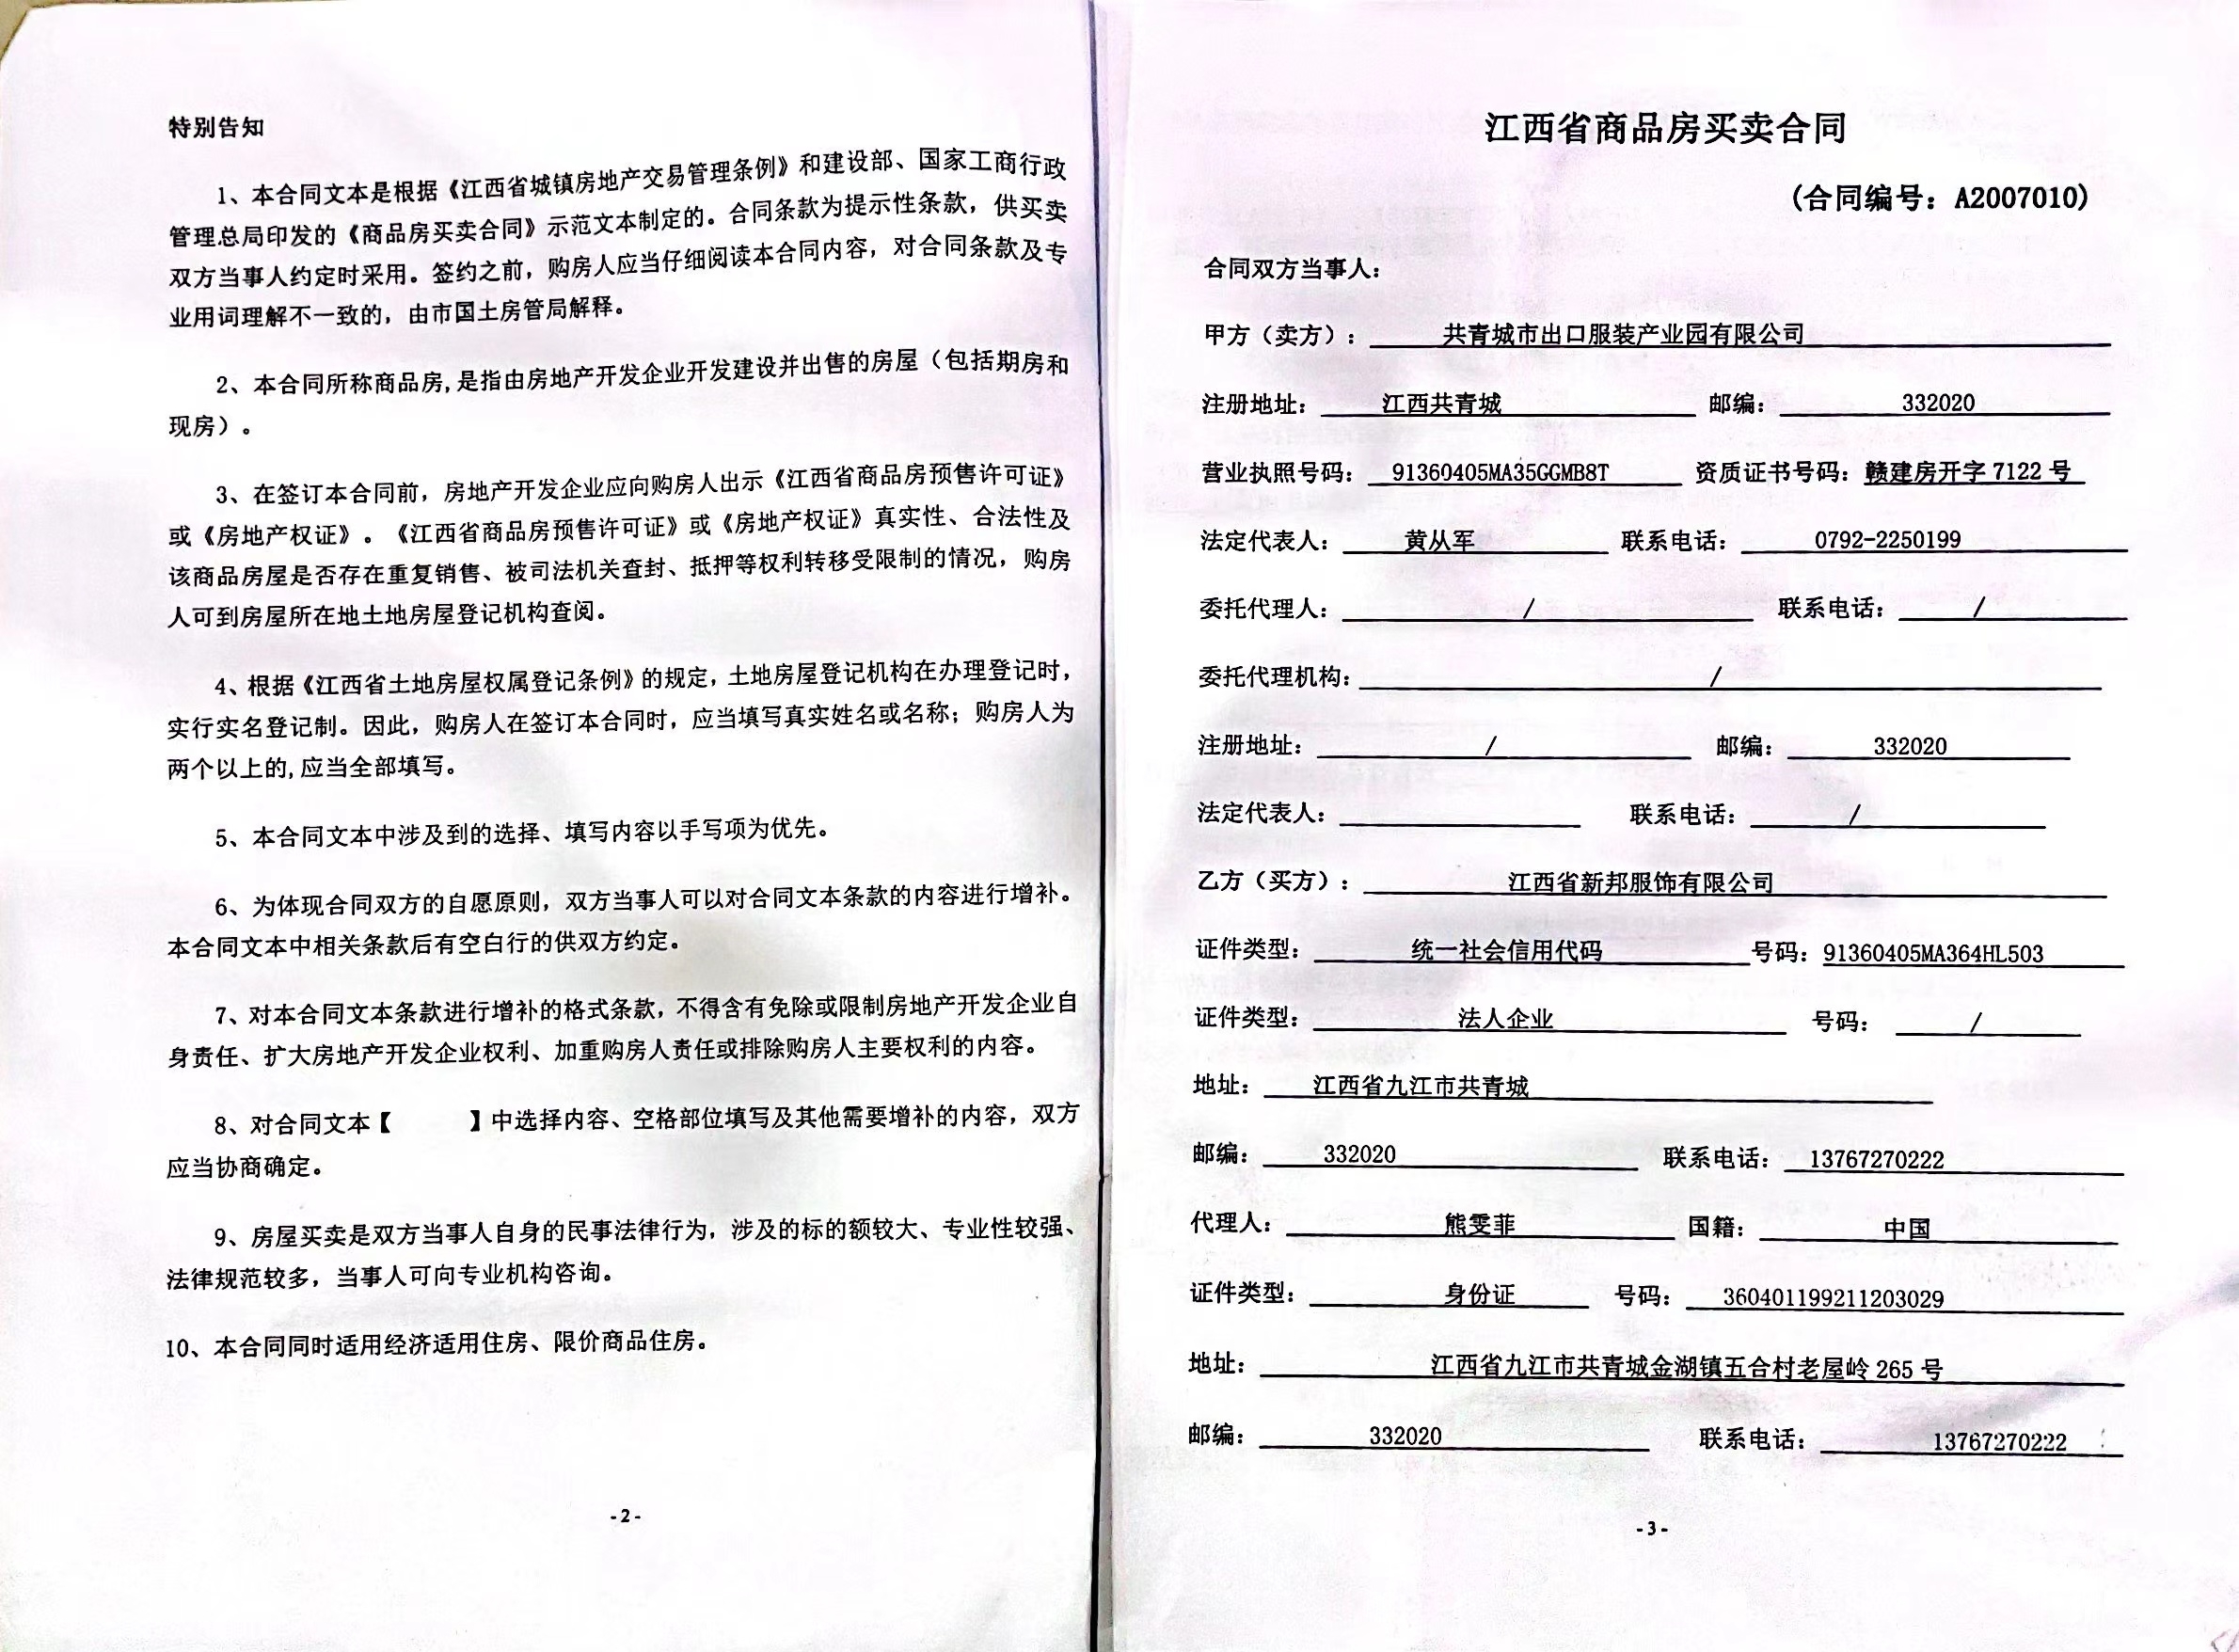 特别告知
1、本合同文本是根据《江西省城镇房地产交易管理条例》和建设部、国家工商行政
管理总局印发的《商品房买卖合同》示范文本制定的。合同条款为提示性条款，供买卖
双方当事人约定时采用。签约之前，购房人应当仔细阅读本合同内容，对合同条款及专
业用词理解不一致的，由市国土房管局解释。
2、本合同所称商品房,是指由房地产开发企业开发建设并出售的房屋（包括期房和
现房）。
3、在签订本合同前，房地产开发企业应向购房人出示《江西省商品房预售许可证》
或《房地产权证》。《江西省商品房预售许可证》或《房地产权证》真实性、合法性及
该商品房屋是否存在重复销售、被司法机关查封、抵押等权利转移受限制的情况，购房
人可到房屋所在地土地房屋登记机构查阅。
4、根据《江西省土地房屋权属登记条例》的规定，土地房屋登记机构在办理登记时，
实行实名登记制。因此，购房人在签订本合同时，应当填写真实姓名或名称；购房人为
两个以上的,应当全部填写。
5、本合同文本中涉及到的选择、填写内容以手写项为优先。
6、为体现合同双方的自愿原则，双方当事人可以对合同文本条款的内容进行增补。
本合同文本中相关条款后有空白行的供双方约定。
7、对本合同文本条款进行增补的格式条款，不得含有免除或限制房地产开发企业自
身责任、扩大房地产开发企业权利、加重购房人责任或排除购房人主要权利的内容。
8、对合同文本【 】中选择内容、空格部位填写及其他需要增补的内容，双方
应当协商确定。
9、房屋买卖是双方当事人自身的民事法律行为，涉及的标的额较大、专业性较强、
法律规范较多，当事人可向专业机构咨询。
10、本合同同时适用经济适用住房、限价商品住房。
-2-
江西省商品房买卖合同
(合同编号：A2007010)
合同双方当事人：
甲方（卖方）：共青城市出口服装产业园有限公司
注册地址：江西共青城 邮编：332020
营业执照号码：91360405MA35GGMB8T 资质证书号码：赣建房开字 7122 号
法定代表人：黄从军 联系电话：0792-2250199
委托代理人：/ 联系电话：/
委托代理机构：/
注册地址：/ 邮编：332020
法定代表人： 联系电话：/
乙方（买方）：江西省新邦服饰有限公司
证件类型：统一社会信用代码 号码：91360405MA364HL503
证件类型：法人企业 号码：/
地址：江西省九江市共青城
邮编：332020 联系电话：13767270222
代理人：熊雯菲 国籍：中国
证件类型：身份证 号码：360401199211203029
地址：江西省九江市共青城金湖镇五合村老屋岭 265 号
邮编：332020 联系电话：13767270222
-3-